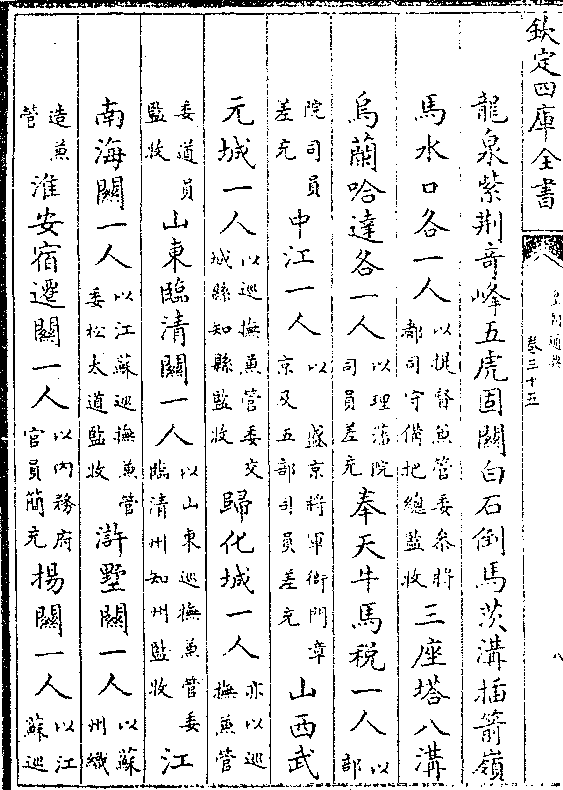 欽定四庫全書
皇朝通典
卷三十五
八
龍泉紫荆竒峰五虎固關白石倒馬茨溝插箭嶺
馬水口各一人以提督兼管委叅將都司守備把總監收三座塔八溝
烏蘭哈達各一人以理藩院司員差充奉天牛馬稅一人以部
院司員差充中江一人以盛京將軍衙門章京及五部司員差充山西武
元城一人以巡撫兼管委交城縣知縣監收歸化城一人亦以巡撫兼管
委道員監收山東臨清關一人以山東巡撫兼管委臨清州知州監收江
南海關一人以江蘇巡撫兼管委松太道監收滸墅關一人以蘇州織
造兼管淮安宿遷關一人以内務府官員簡充揚關一人以江蘇巡